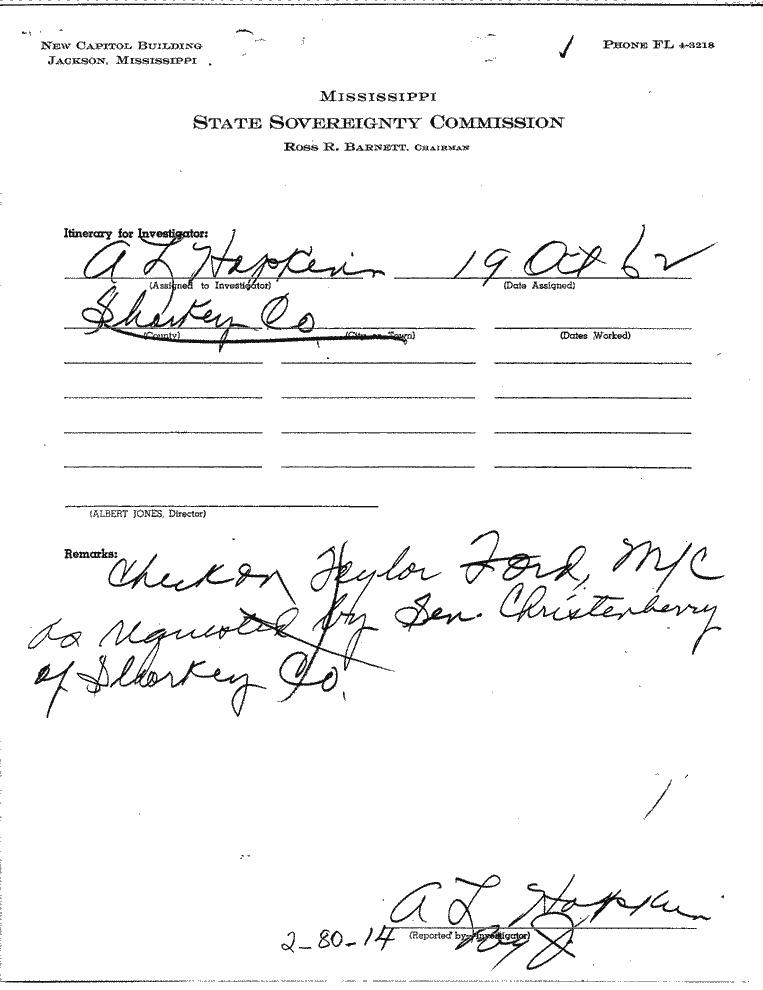 NEW CAPITOL BUILDING
JACKSON, MISSISSIPPI
PHONE FL 4-3218
MISSISSIPPI
STATE SOVEREIGNTY COMMISSION
ROSS R. BARNETT, CHAIRMAN
Itinerary for Investigator:
A L Hopkins 19 Oct 62
(Assigned to Investigator) (Date Assigned)
Sharkey Co
(County) (City or Town) (Dates Worked)
(ALBERT JONES, Director)
Remarks:
Check on Taylor Ford, M/C
as requested by Sen. Christenberry
of Sharkey Co.
A L Hopkins
2-80-14 (Reported by Investigator)